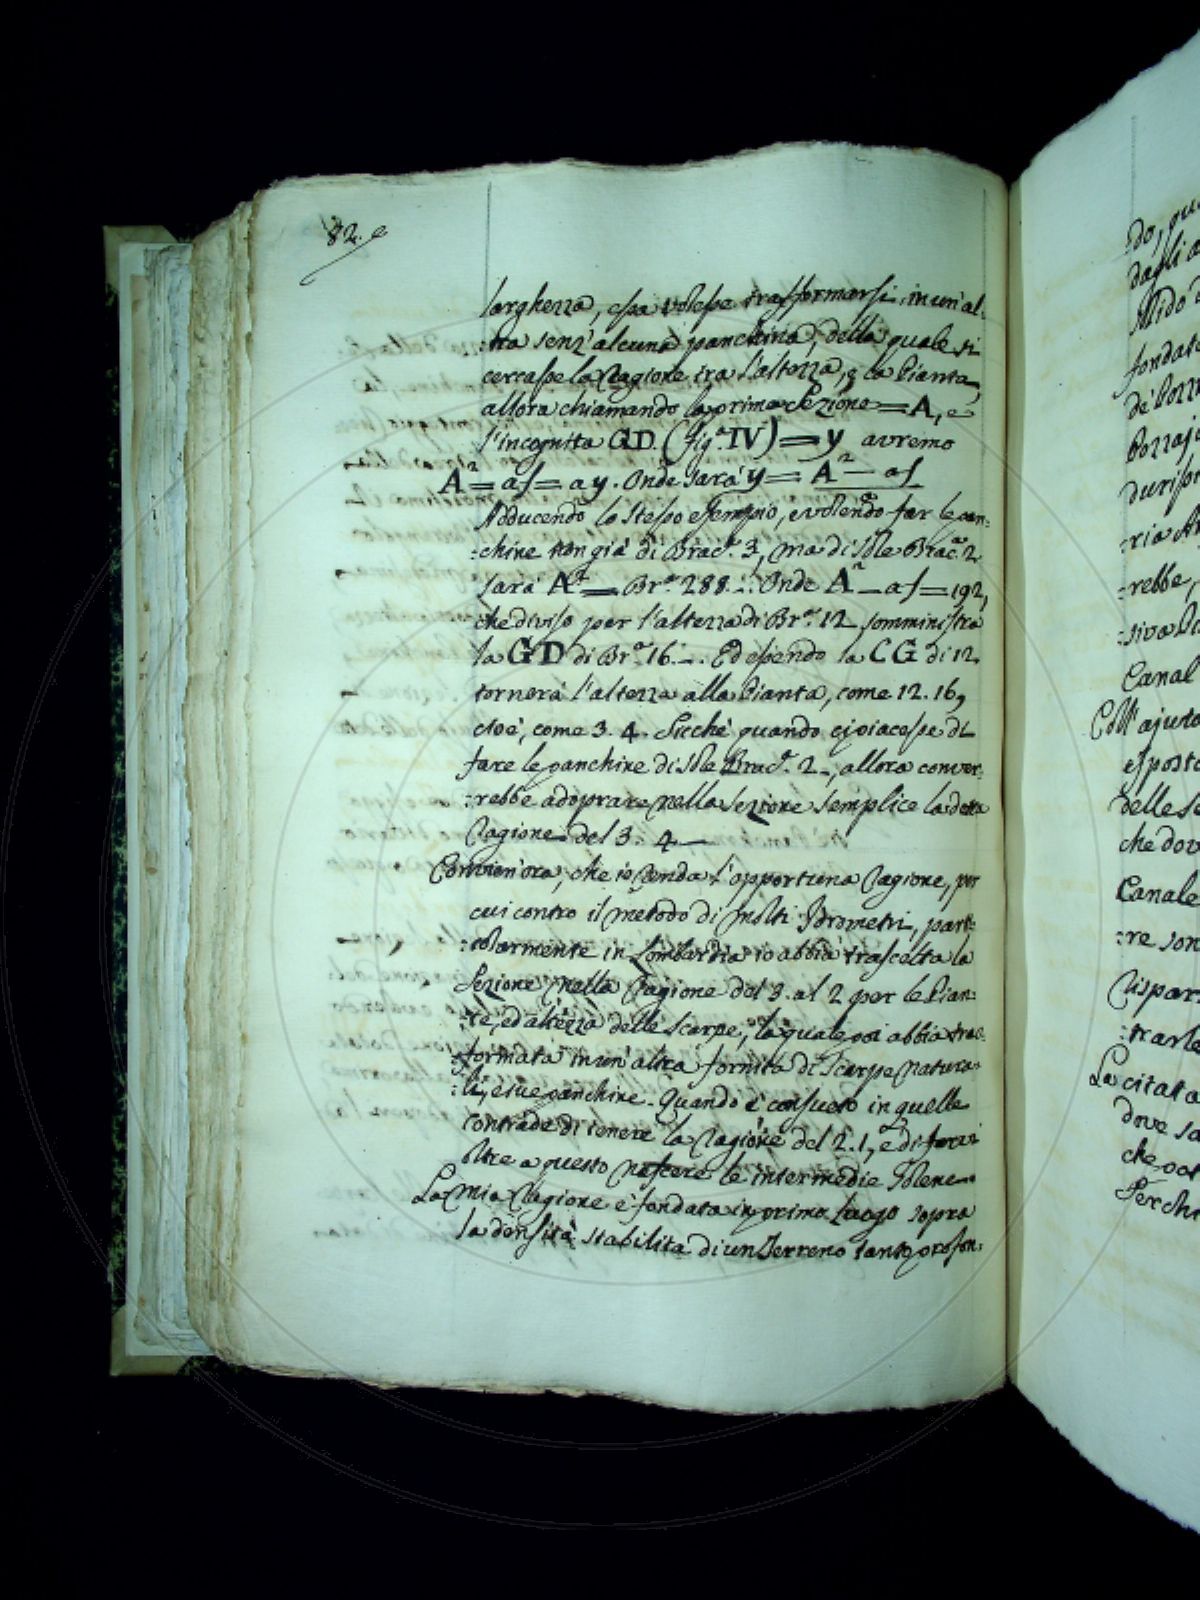 82.
larghezza, essa volesse trasformarsi in un'al-
:tra senz'alcuna panchina, della quale si
cercasse la Ragione tra l'altezza, e la Pianta,
allora chiamando la prima Sezione = A, e
l'incognita GD. (fig.ª IV) = y avremo
A² = af = ay. Onde sarà y = A² — af
Adducendo lo stesso esempio, e volendo far le pan-
:chine non già di Brac.ª 3, ma di sole Brac.ª 2
sarà A² = Br.ª 288. Onde A² — af = 192,
che diviso per l'altezza di Br.ª 12 somministra
la GD di Br.ª 16. Ed essendo la CG di 12
tornerà l'altezza alla Pianta, come 12. 16,
cioè, come 3. 4. Sicchè quando ci piacesse di
fare le panchine di sole Brac.ª 2, allora conver-
:rebbe adoprare nella sezione semplice la detta
Ragione del 3. 4
Convien'ora, che io renda l'opportuna Ragione, per
cui contro il metodo di molti Idrometri, parti-
:colarmente in Lombardia io abbia trascelta la
Sezione nella Ragione del 3. al 2 per le Pian-
:te, ed altezza delle scarpe, la quale poi abbia tras-
:formata in un'altra fornita di Scarpe natura-
:li, e sue panchine. Quando è consueto in quelle
contrade di tenere la Ragione del 2. 1, e di farvi
oltre a questo nascere le intermedie Golene
La mia Ragione è fondata in primo luogo sopra
la densità stabilita di un Terreno tanto profon-
do,
dagli
Mido
fondat
de
durispi
:ria
:rebbe,
:siva
Canal
Coll'ajuto
esposto
delle
che dov
Canale
:re son
:trarle
La citata
dove sa
che
Perch